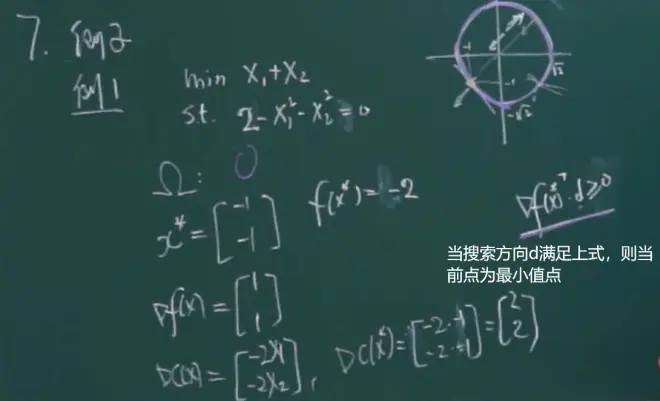 7. 例2
例1
min x₁+x₂
s.t. 2-x₁²-x₂²=0
-1
√2
-1
-√2
Ω: O
x* = [-1 -1] f(x*)=-2
∇f(x*)ᵀ·d≥0
当搜索方向d满足上式，则当
前点为最小值点
∇f(x) = [1 1]
∇C(x) = [-2x₁ -2x₂], ∇C(x*) = [-2·-1 -2·-1] = [2 2]